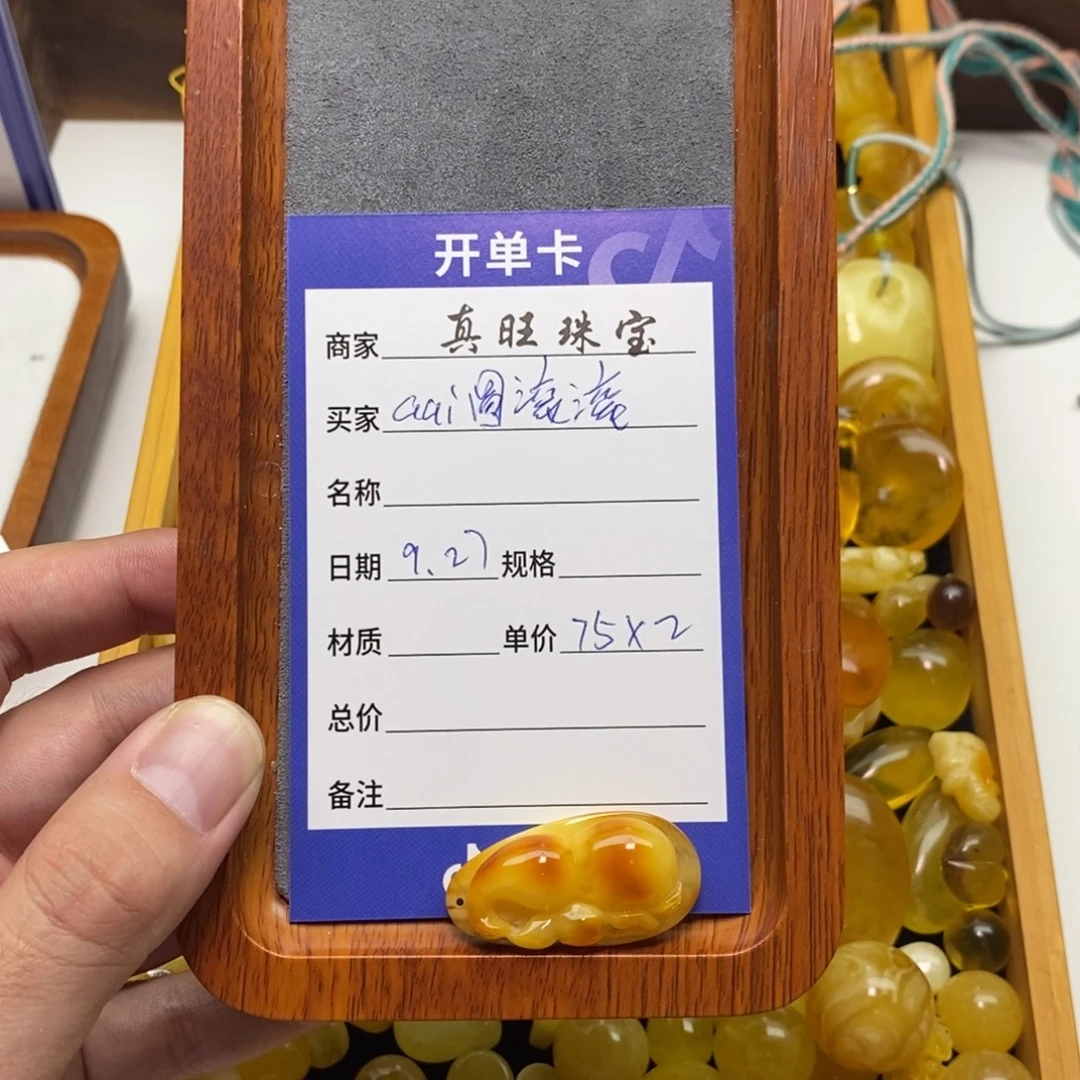 开单卡
商家 真旺珠宝
买家 aqi圆滚滚
名称
日期 9.27 规格
材质 单价 75×2
总价
备注